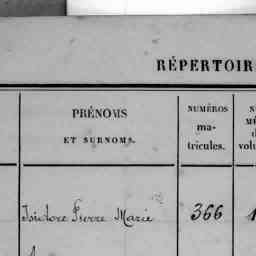 RÉPERTOIR
PRÉNOMS
ET SURNOMS.
NUMÉROS
ma-
tricules.
Isidore Pierre Marie
366